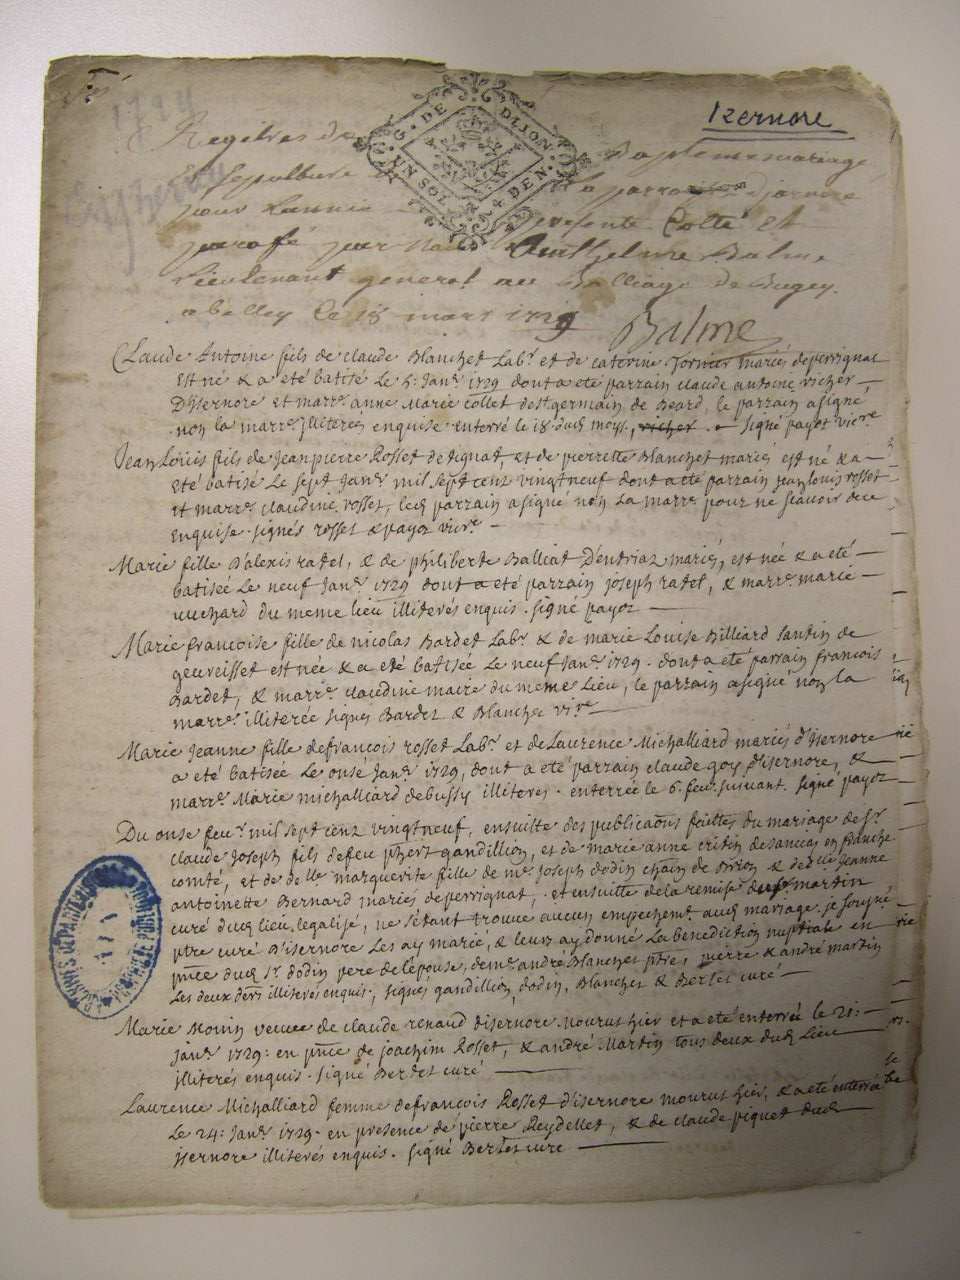 1729
Izernore
G. DE DIJON
UN SOL 4 DEN
Regitres de Baptemes mariage
Sepulture La parroisse Djernore
pour Lannee presente Cotté et
paraffé par Nous Anthelme Balme
Lieutenant general au Balliage de Bugey
a belley Le 18 mars 1729
Balme
Claude Antoine fils de claude Blanchet Labr et de caterine fornier mariés de perrignat
est né & a eté batisé Le 5: Janr 1729 dont a eté parrain claude antoine vicher
D'Isernore et marre anne Marie collet de st germain de Beard, le parrain a signé
non la marre illiterée enquise enterré le 18 dud moys, vicher signé payot vicre
Jean Louis fils de Jean pierre Rosset de tignat, et de pierrette Blanchet mariés est né & a
eté batisé Le sept Janr mil sept cent vingt neuf dont a eté parrain jean louis rosset
et marre claudine rosset, led parrain a signé non La marre pour ne scavoir de ce
enquise. signés rosset & payot vicre
Marie fille D'alexis ratel, & de philiberte Balliat D'entriaz mariés, est née & a eté
batisée Le neuf Janr 1729 dont a eté parrain joseph ratel, & marre marie
vuchard du meme lieu illiterés enquis. signé payot
Marie francoise fille de nicolas Bardet Labr & de marie Louise Billiard Santin de
geovreisset est née & a eté batisée Le neuf Janr 1729. dont a eté parrain francois
Bardet, & marre claudine maire du meme Lieu, le parrain a signé non la
marre illiterée signés Bardet & Blanchet vire
Marie Jeanne fille de francois rosset Labr et de Laurence Michalliard mariés d'Isernore
a eté batisée Le onse Janr 1729, dont a eté parrain claude goy d'isernore, &
marre Marie michalliard de bussy illiterés. enterrée le 6. feur suivant. signé payot
Du onse feur mil sept cent vingt neuf, ensuitte des publicaons feittes du mariage de sr
claude Joseph fils de feu phert gandillion, et de marie anne cristin de sancia en franche
comté, et de delle marguerite fille de me joseph dodin chain de Brion & de delle Jeanne
antoinette Bernard mariés de perrignat, et ensuitte de la remise de mr martin
curé dud lieu, legalisé, ne s'etant trouvé aucun empechemt aud mariage. je sousigné
ptre curé D'isernore Les ay marié, & leur ay donné La benediction nuptiale en
pnce dud sr dodin pere de l'epouse, de mre andré Blanchet ptre, pierre & andré martin
Les deux derrs illiterés enquis, signés gandillion, dodin, Blanchet & Bertet curé
Marie Moirin veuve de claude renaud d'isernore mourut hier et a eté enterrée le 21:
janr 1729. en pnce de joachim Rosset, & andré Martin tous deux dud Lieu
illiterés enquis. signé Bertet curé
Laurence Michalliard femme de francois Rosset d'isernore mourut hier, & a eté enterrée
Le 24: Janr 1729. en presence de pierre Reydellet, & de claude piquet dud
isernore illiterés enquis. signé Bertet curé